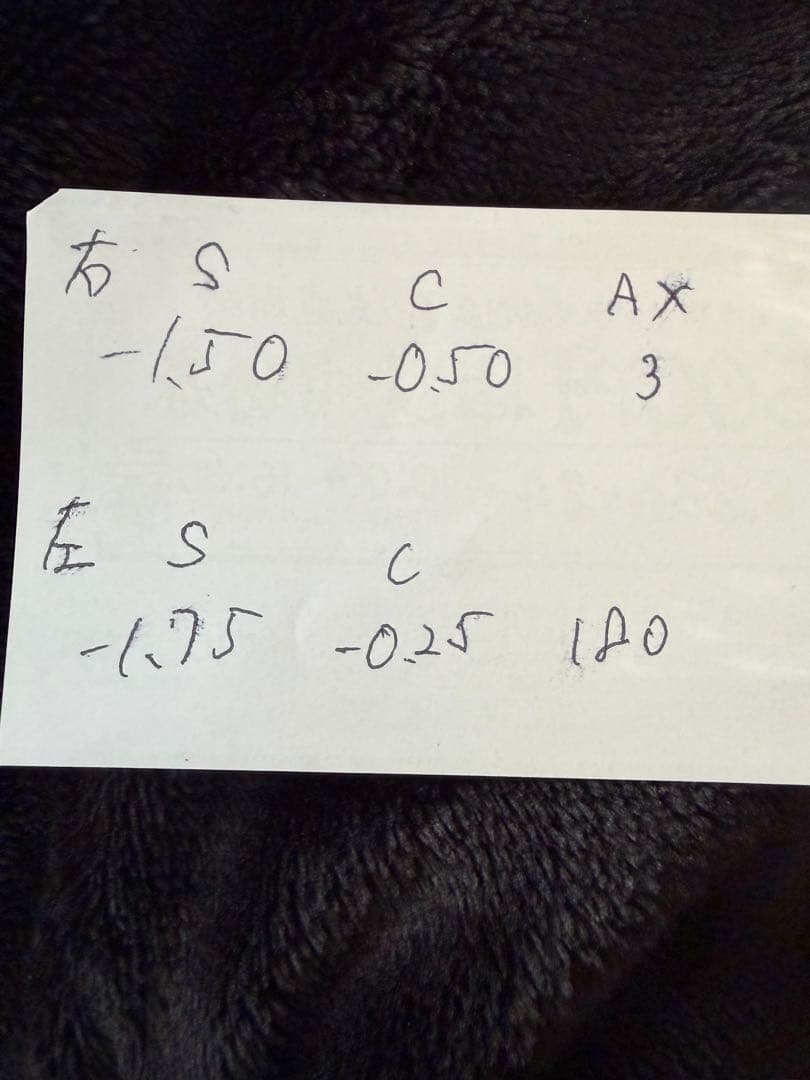 右 S C AX
-1.50 -0.50 3
左 S C
-1.75 -0.25 180